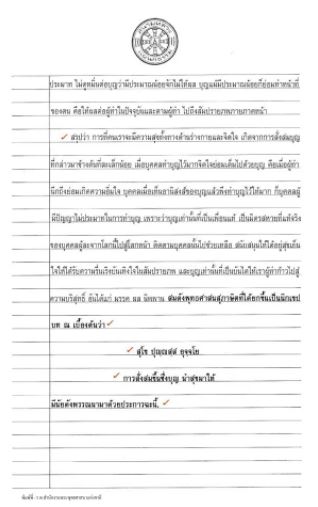 ประมาท ไม่ดูหมิ่นต่อบุญว่ามีประมาณน้อยจักไม่ให้ผล บุญแม้มีประมาณน้อยก็ย่อมทำหน้าที่
ของตน คือให้ผลต่อผู้ทำในปัจจุบันและตามผู้ทำ ไปถึงสัมปรายภพภายภาคหน้า
✓ สรุปว่า การที่คนเราจะมีความสุขทั้งทางด้านร่างกายและจิตใจ เกิดจากการสั่งสมบุญ
ที่กล่าวมาข้างต้นทีละเล็กน้อย เมื่อบุคคลทำบุญไว้มากจิตใจย่อมเต็มไปด้วยบุญ คือเมื่อผู้ทำ
นึกถึงย่อมเกิดความอิ่มใจ บุคคลเมื่อเห็นอานิสงส์ของบุญแล้วพึงทำบุญไว้ให้มาก ก็บุคคลผู้
มีปัญญาไม่ประมาทในการทำบุญ เพราะว่าบุญเท่านั้นที่เป็นเพื่อนแท้ เป็นมิตรสหายที่แท้จริง
ของบุคคลผู้ละจากโลกนี้ไปสู่โลกหน้า ติดตามบุคคลนั้นไปช่วยเหลือ สนับสนุนให้ได้อยู่สุขเย็น
ใจให้ได้รับความรื่นเริงบันเทิงใจในสัมปรายภพ และบุญเท่านั้นที่เป็นบันไดให้เราผู้ทำก้าวไปสู่
ความบริสุทธิ์ อันได้แก่ มรรค ผล นิพพาน สมดังพุทธศาสนสุภาษิตที่ได้ยกขึ้นเป็นนิกเขป
บท ณ เบื้องต้นว่า ✓
✓ สุโข ปุญฺญสฺส อุจฺจโย
✓ การสั่งสมขึ้นซึ่งบุญ นำสุขมาให้
มีนัยดังพรรณนามาด้วยประการฉะนี้. ✓